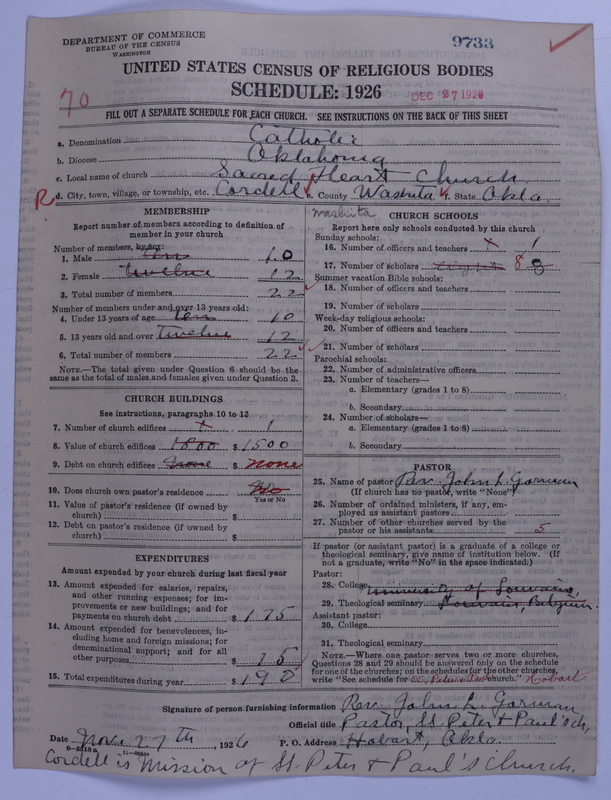 DEPARTMENT OF COMMERCE
BUREAU OF THE CENSUS
WASHINGTON
9733
UNITED STATES CENSUS OF RELIGIOUS BODIES
SCHEDULE: 1926
DEC 27 1926
70
FILL OUT A SEPARATE SCHEDULE FOR EACH CHURCH. SEE INSTRUCTIONS ON THE BACK OF THIS SHEET
a. Denomination Catholic
b. Diocese Oklahoma
c. Local name of church Sacred Heart Church
R d. City, town, village, or township, etc. Cordell e. County Washita f. State Okla.
Washita
MEMBERSHIP
Report number of members according to definition of member in your church
Number of members, by sex:
1. Male ten 10
2. Female twelve 12
3. Total number of members 22
Number of members under and over 13 years old:
4. Under 13 years of age ten 10
5. 13 years old and over twelve 12
6. Total number of members 22
NOTE.—The total given under Question 6 should be the
same as the total of males and females given under Question 3.
CHURCH BUILDINGS
See instructions, paragraphs 10 to 12
7. Number of church edifices 1
8. Value of church edifices 1500 $ 1500
9. Debt on church edifices none $ none
10. Does church own pastor's residence No
Yes or No
11. Value of pastor's residence (if owned by
church) $
12. Debt on pastor's residence (if owned by
church) $
EXPENDITURES
Amount expended by your church during last fiscal year
13. Amount expended for salaries, repairs,
and other running expenses; for im-
provements or new buildings; and for
payments on church debt $ 175
14. Amount expended for benevolences, in-
cluding home and foreign missions; for
denominational support; and for all
other purposes $ 15
15. Total expenditures during year $ 190
CHURCH SCHOOLS
Report here only schools conducted by this church
Sunday schools:
16. Number of officers and teachers 1
17. Number of scholars eight 8 8
Summer vacation Bible schools:
18. Number of officers and teachers
19. Number of scholars
Week-day religious schools:
20. Number of officers and teachers
21. Number of scholars
Parochial schools:
22. Number of administrative officers
23. Number of teachers—
a. Elementary (grades 1 to 8)
b. Secondary
24. Number of scholars—
a. Elementary (grades 1 to 8)
b. Secondary
PASTOR
25. Name of pastor Rev. John L. Gorman
(If church has no pastor, write "None")
26. Number of ordained ministers, if any, em-
ployed as assistant pastors
27. Number of other churches served by the
pastor or his assistants 5
If pastor (or assistant pastor) is a graduate of a college or
theological seminary, give name of institution below. (If
not a graduate, write "No" in the space indicated.)
Pastor:
28. College University of Louvain,
29. Theological seminary Louvain Belgium.
Assistant pastor:
30. College
31. Theological seminary
NOTE.—Where one pastor serves two or more churches,
Questions 28 and 29 should be answered only on the schedule
for one of the churches; on the schedules for the other churches,
write "See schedule for SS. Peter & Paul church." Hobart
Signature of person furnishing information Rev. John L. Gorman
Official title Pastor, SS. Peter & Paul's ch,
Date Nov. 27th, 1926 P. O. Address Hobart, Okla.
Cordell is Mission of SS. Peter & Paul's Church.